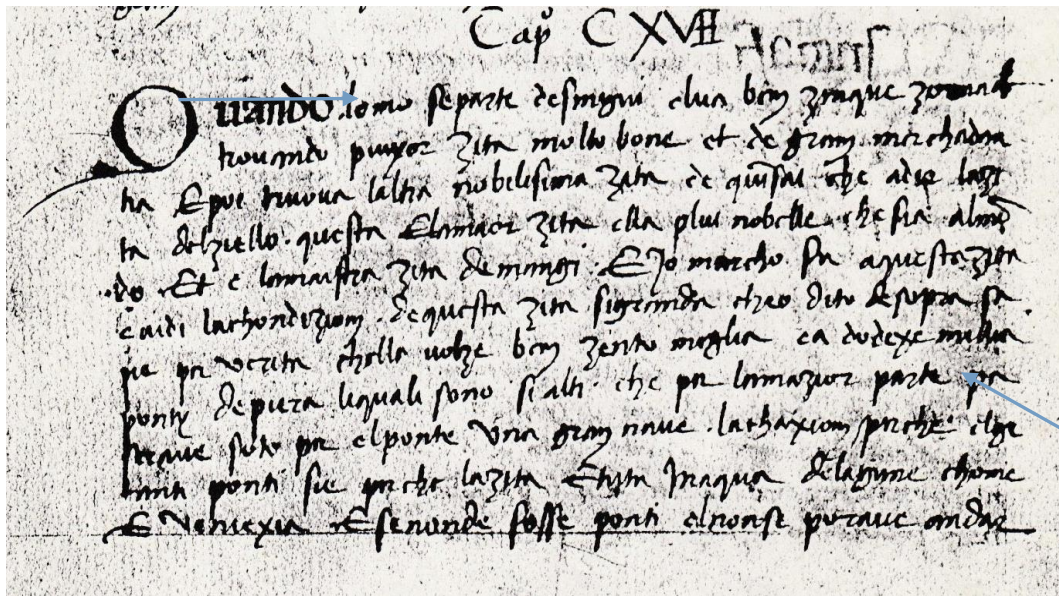 Cap° CXVII
Quando lomo separte desingui elua ben zinque zornad
trovando pluxor Zita molto bone et de gram merchadan
tia E poi truova laltra nobelisima Zita de quinsai che adir
ta delziello. questa Elamaor Zita ella plui nobelle. che sia almon
do Et e lamaistra Zita demangi. E Jo marcho. fu aquesta zita
e aidi lachondiziom. dequesta Zita sigranda cheo dito desopra sa
pie per verita chella volze ben zento meglia ea dodexe millia
ponty depiera liquali sono si alti. che per lamazior parte pa
serave soto per elponte Una gram nave. lachaxiom perche elge
tanti ponti sie perche lazita Etuta Inaqua delagune chome
E Veniexia E senonde fosse ponti elnonse porave andar